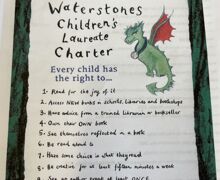 Waterstones
Children's
Laureate
Charter
Every child has
the right to...
1. Read for the joy of it
2. Access NEW books in schools, libraries and bookshops
3. Have advice from a trusted librarian or bookseller
4. Own their OWN book
5. See themselves reflected in a book
6. Be read aloud to
7. Have some choice in what they read
8. Be creative for at least fifteen minutes a week
9. See an author proof at least ONCE